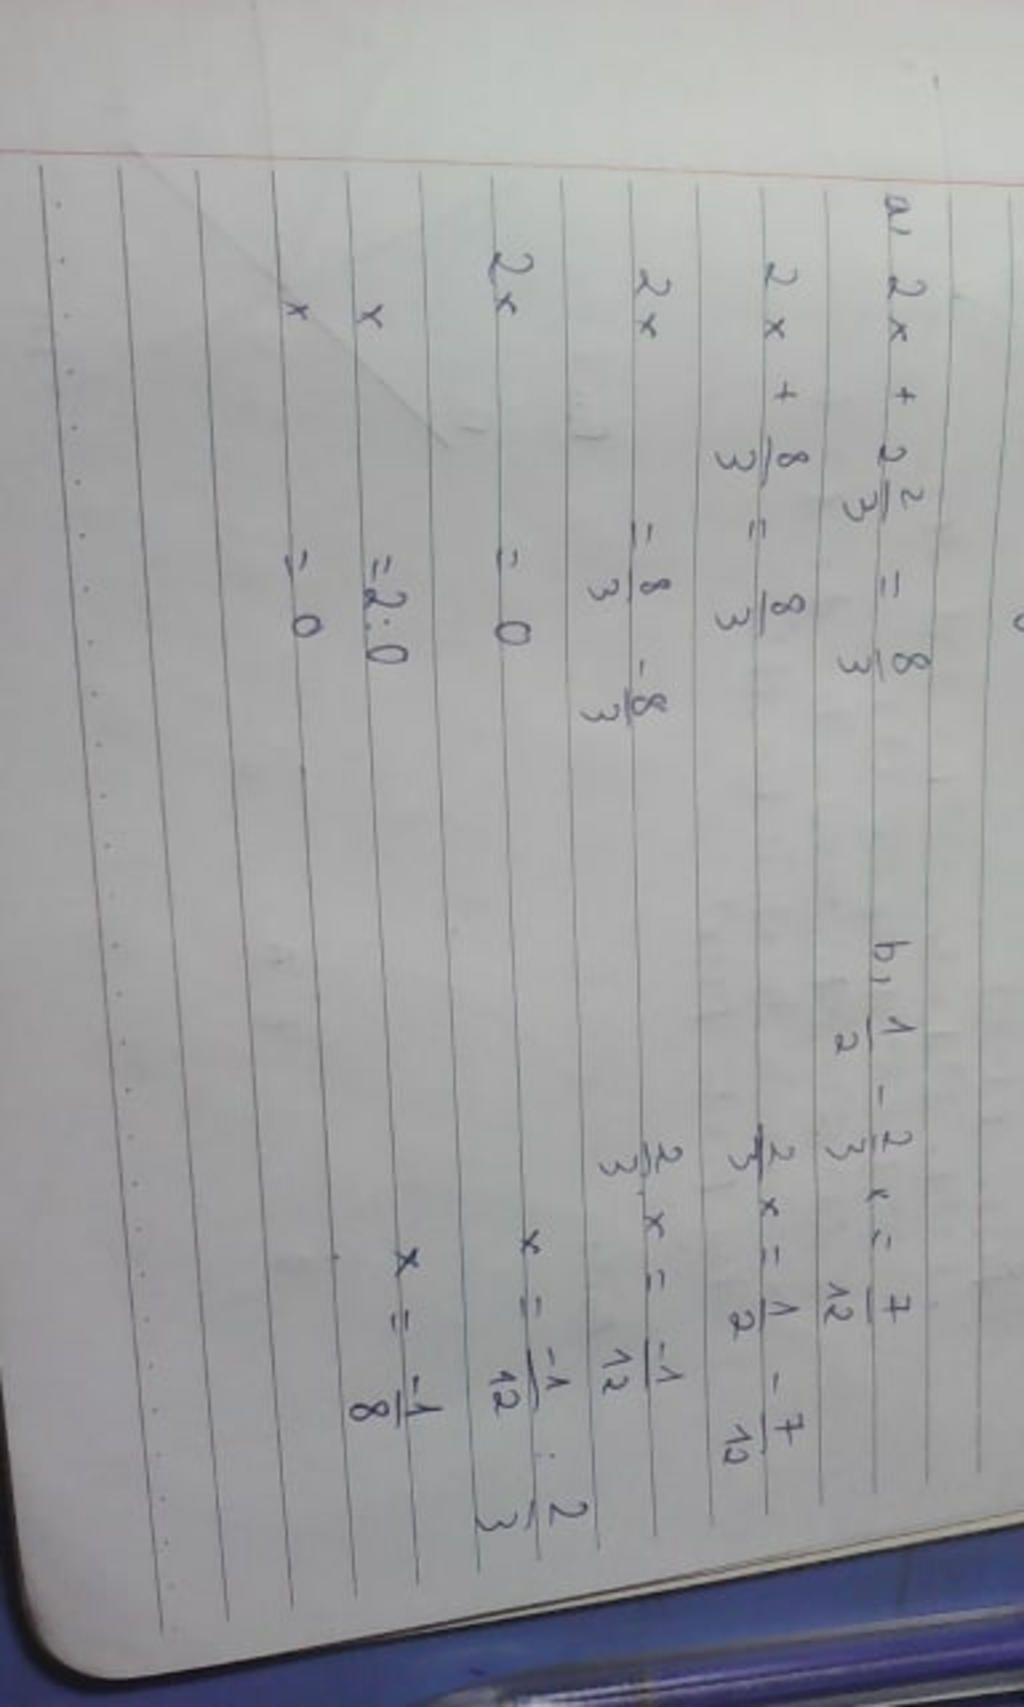 a, 2x + 2 2/3 = 8/3
2x + 8/3 = 8/3
2x = 8/3 - 8/3
2x = 0
x = 2:0
x = 0
b, 1/2 - 2/3 x = 7/12
2/3 x = 1/2 - 7/12
2/3 x = -1/12
x = -1/12 : 2/3
x = -1/8